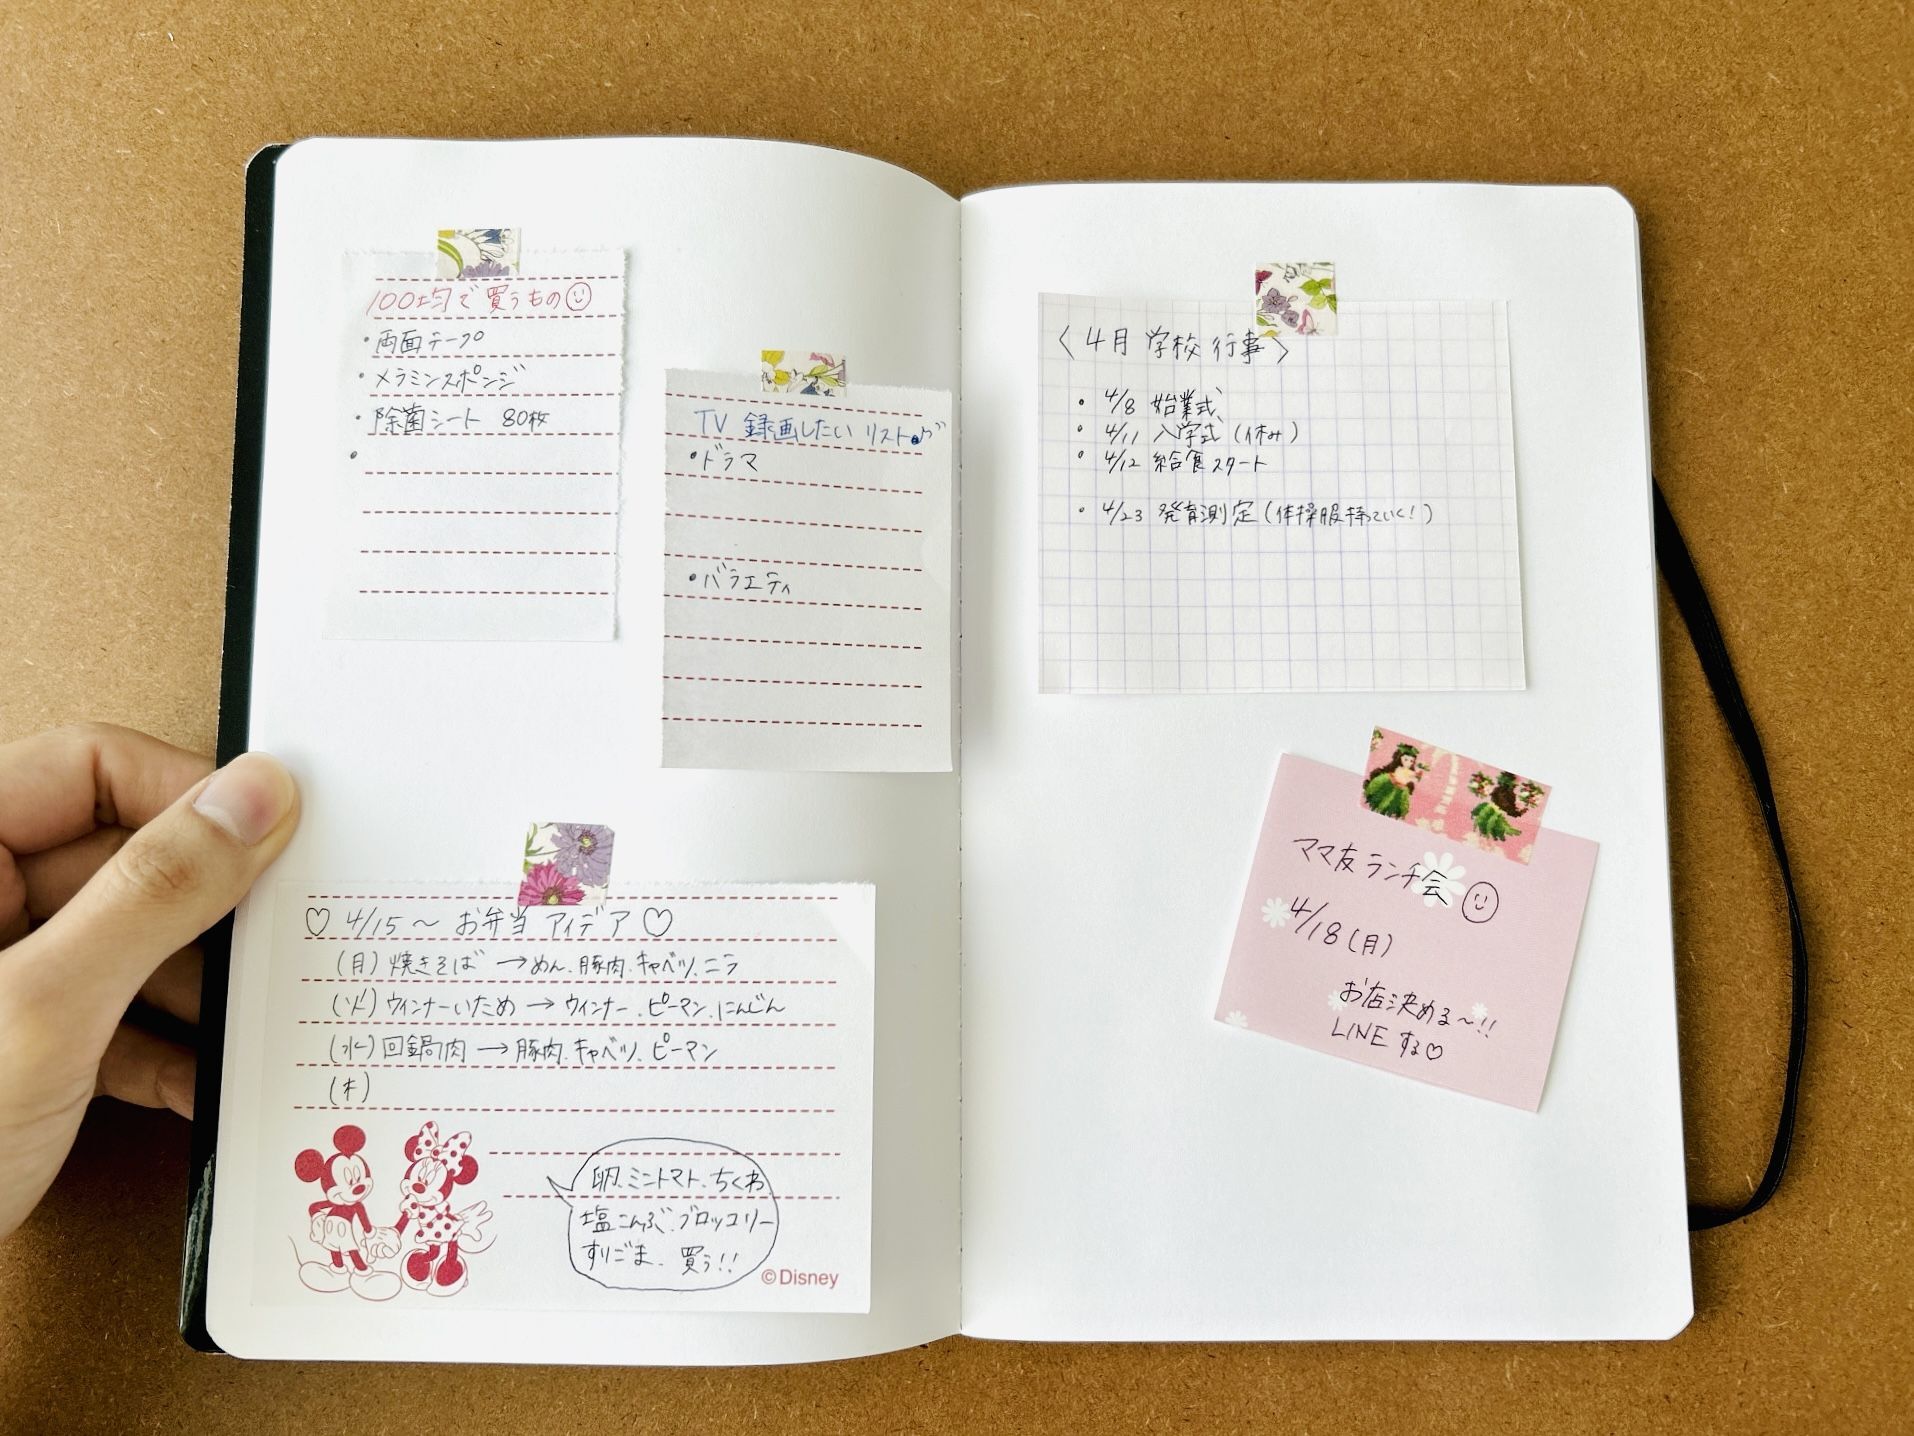 100均で買うもの
・両面テープ
・メラミンスポンジ
・除菌シート 80枚
・
TV 録画したい リスト
・ドラマ
・バラエティ
♡ 4/15～ お弁当 アイデア ♡
(月) 焼きそば → めん、豚肉、キャベツ、ニラ
(火) ウィンナーいため → ウィンナー、ピーマン、にんじん
(水) 回鍋肉 → 豚肉、キャベツ、ピーマン
(木)
卵、ミニトマト、ちくわ
塩こんぶ、ブロッコリー
すりごま、買う!!
©Disney
〈4月 学校 行事〉
・4/8 始業式
・4/11 入学式 (休み)
・4/12 給食スタート
・4/23 発育測定 (体操服持っていく!)
ママ友ランチ会
4/18 (月)
お店決める～!!
LINE する♡